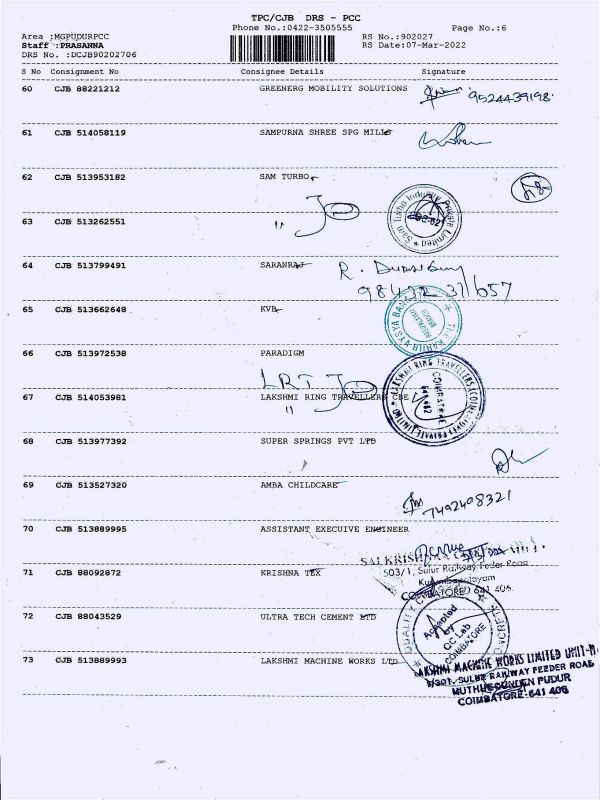 TPC/CJB DRS - PCC
Phone No.:0422-3505555 Page No.:6
Area :MGPUDURPCC RS No.:902027
Staff :PRASANNA RS Date:07-Mar-2022
DRS No. :DCJB90202706
S No Consignment No Consignee Details Signature
60 CJB 88221212 GREENERG MOBILITY SOLUTIONS
9524439198
61 CJB 514058119 SAMPURNA SHREE SPG MILLS
62 CJB 513953182 SAM TURBO
Sam Turbo Industry Private Limited
63 CJB 513262551 "
64 CJB 513799491 SARANRAJ
98432 31657
65 CJB 513662648 KVB
THE KARUR VYSYA BANK
66 CJB 513972538 PARADIGM
LRT
67 CJB 514053981 LAKSHMI RING TRAVELLERS CBE
"
LAKSHMI RING TRAVELLERS (COIMBATORE) PRIVATE LIMITED
COIMBATORE
68 CJB 513977392 SUPER SPRINGS PVT LTD
69 CJB 513527320 AMBA CHILDCARE
7492408321
70 CJB 513889995 ASSISTANT EXECUIVE ENGINEER
503/1, Sulur Railway Feeder Road
71 CJB 88092872 KRISHNA TEX
COIMBATORE 641 406
72 CJB 88043529 ULTRA TECH CEMENT LTD
QUALITY
Accepted
by
QC Lab
COIMBATORE
73 CJB 513889993 LAKSHMI MACHINE WORKS LTD
LAKSHMI MACHINE WORKS LIMITED UNIT-II
SULUR RAILWAY FEEDER ROAD
MUTHUGOUNDEN PUDUR
COIMBATORE-641 406